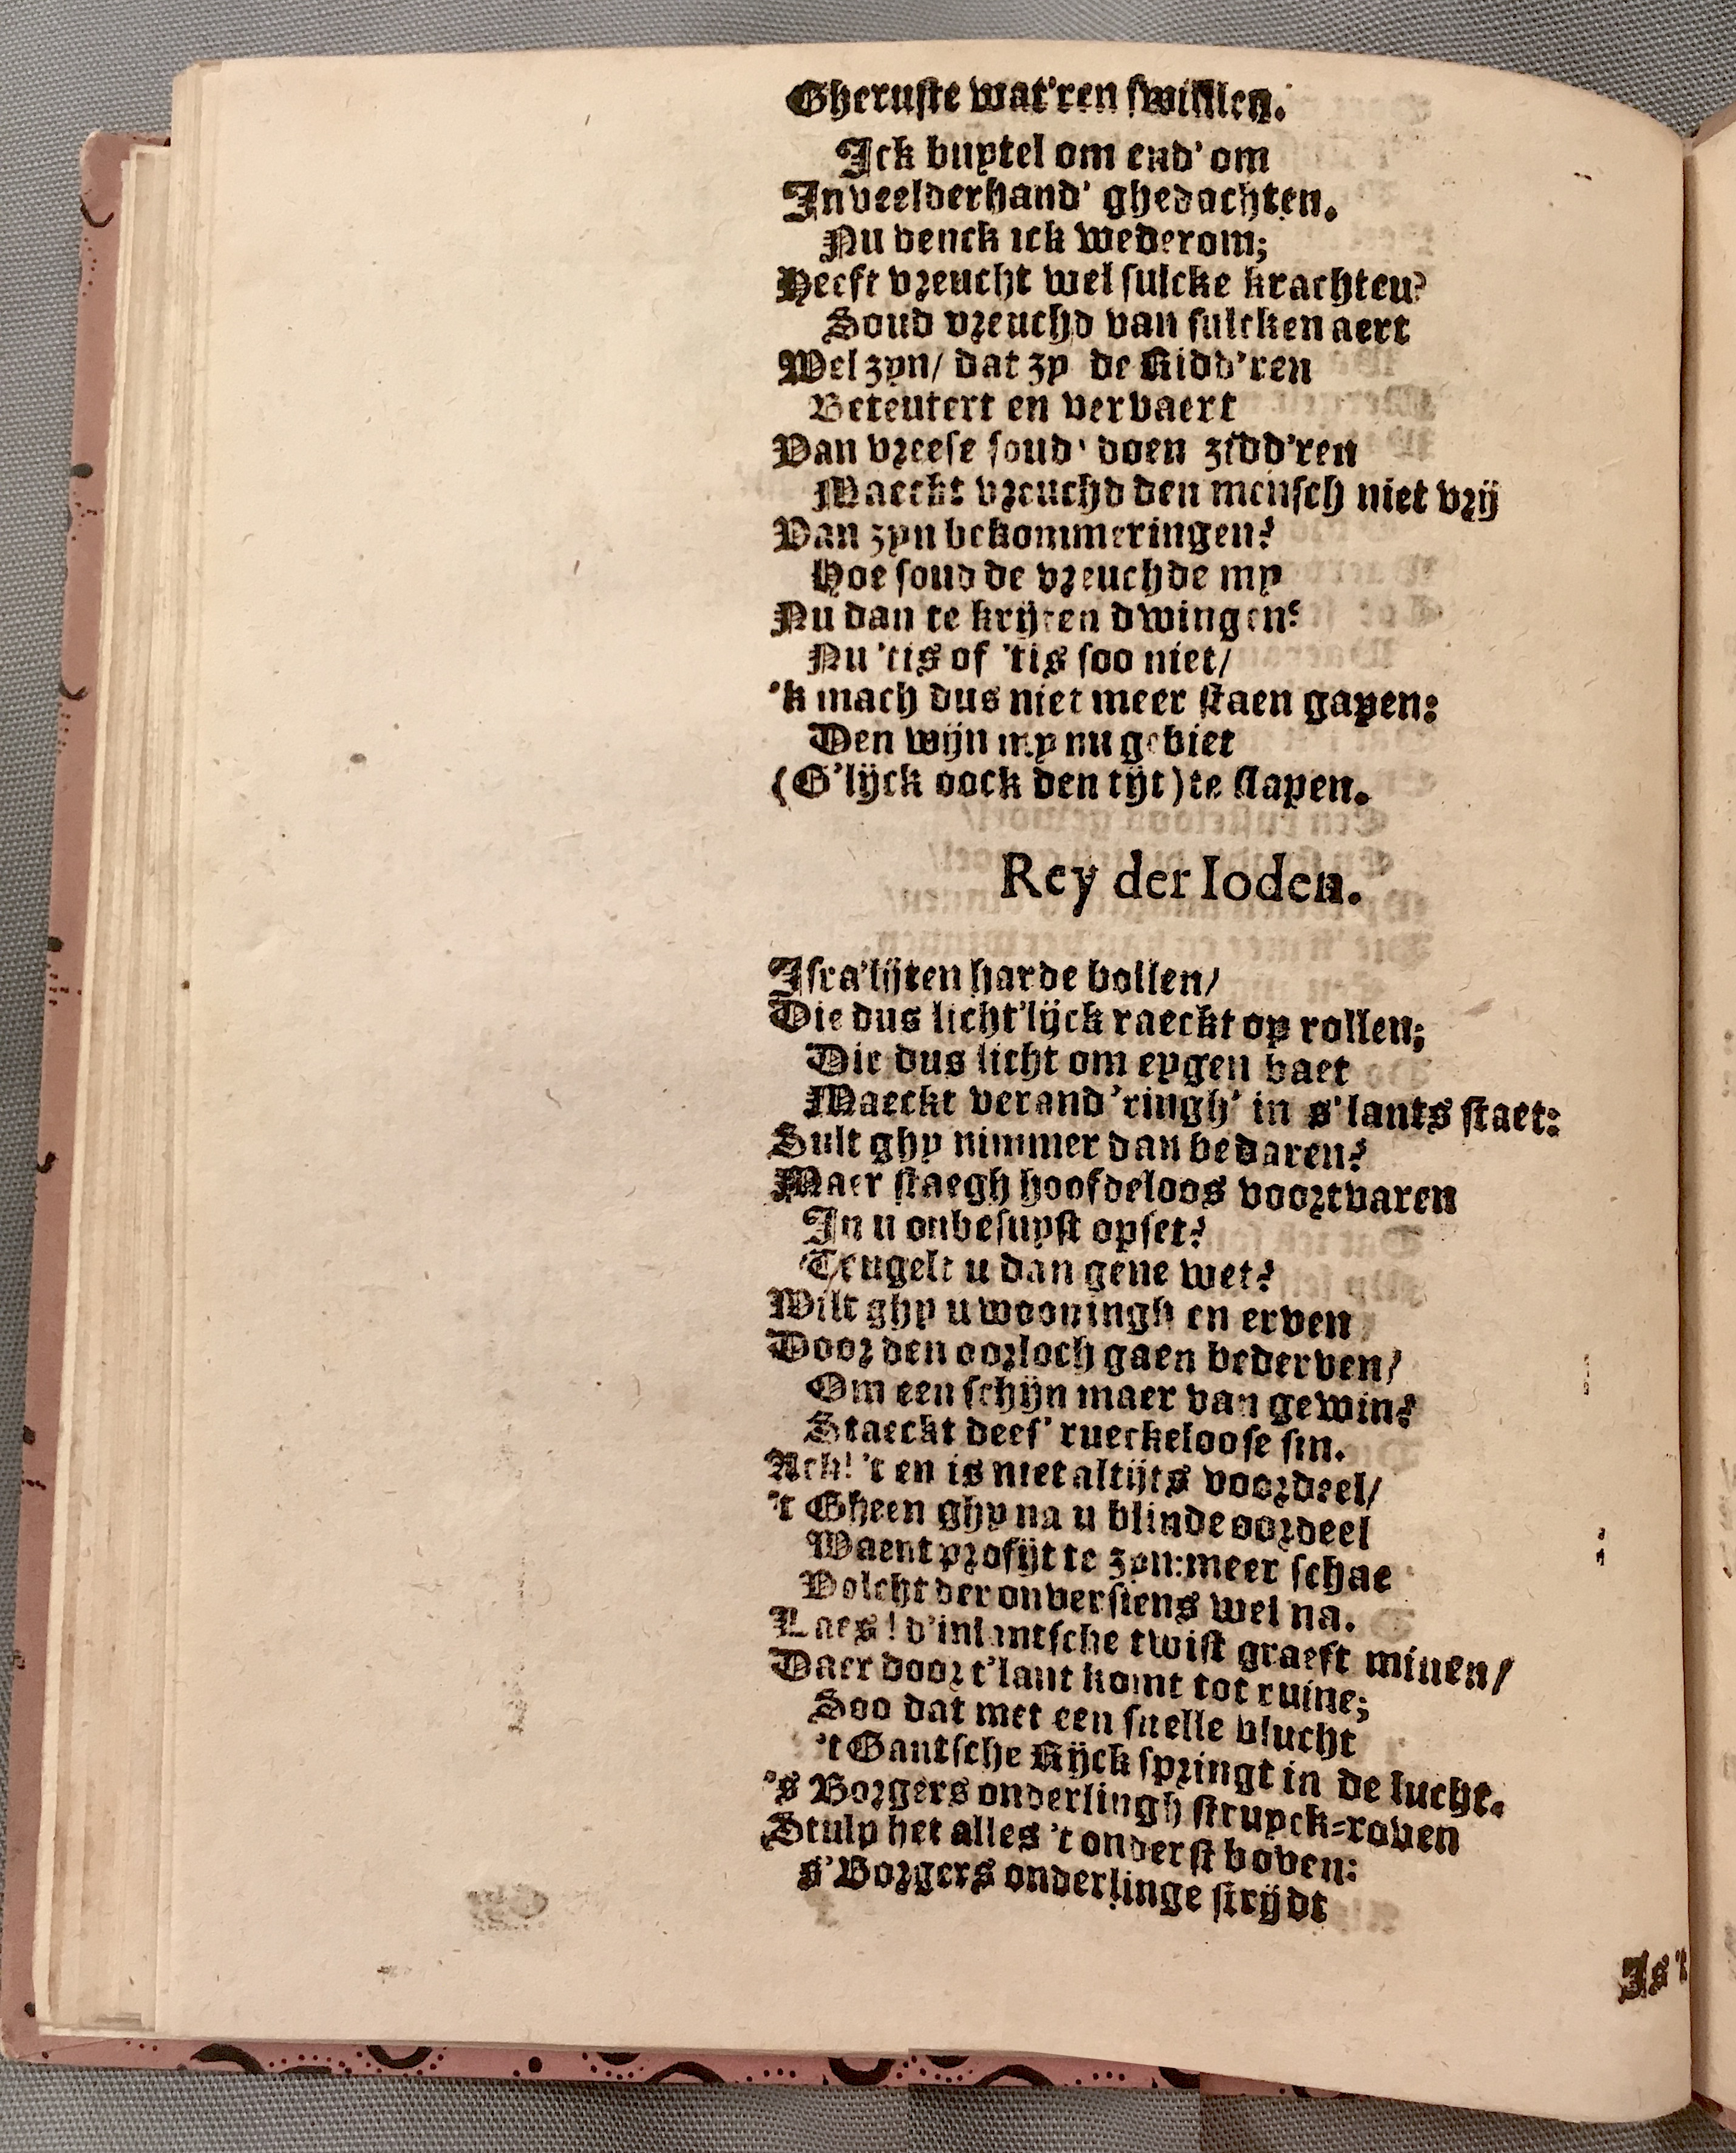 Gheruste wat'ren swillen.
Ick buytel om end' om
In veelderhand' ghedachten.
Nu denck ick wederom;
Heeft vreucht wel sulcke krachten?
Soud vreuchd van sulcken aert
Wel zyn/ dat zy de Ridd'ren
Beteutert en vervaert
Van vreese soud' doen zidd'ren
Maeckt vreuchd den mensch niet vrij
Van zyn bekommeringen?
Hoe soud de vreuchde my
Nu dan te krijten dwingen?
Nu 'tis of 'tis soo niet/
'k mach dus niet meer staen gapen:
Den wijn my nu gebiet
(G'lijck oock den tijt) te slapen.
Rey der Ioden.
Isra'lijten harde bollen/
Die dus licht'lijck raeckt op rollen;
Die dus licht om eygen baet
Maeckt verand'ringh' in s'lants staet:
Sult ghy nimmer dan bedaren?
Maer staegh hoofdeloos voortvaren
In u onbesuyst opset?
Teugelt u dan gene wet?
Wilt ghy u wooningh en erven
Door den oorloch gaen bederven/
Om een schijn maer van gewin?
Staeckt dees' rueckeloose sin.
Ach! 't en is niet altijts voordeel/
't Gheen ghy na u blinde oordeel
Waent profijt te zyn: meer schae
Volcht der onversiens wel na.
Laes! d'inlantsche twist graeft minen/
Daer door t'lant komt tot ruine;
Soo dat met een snelle vlucht
't Gantsche Rijck springt in de lucht.
's Borgers onderlingh struyck-roven
Stulp het alles 't onderst boven:
s'Borgers onderlinge strijdt
Is 't